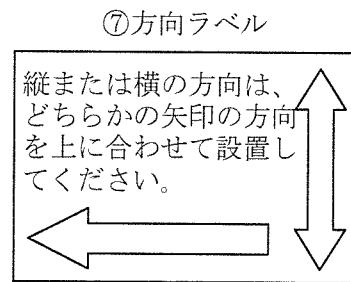 ⑦方向ラベル
縦または横の方向は、
どちらかの矢印の方向
を上に合わせて設置し
てください。